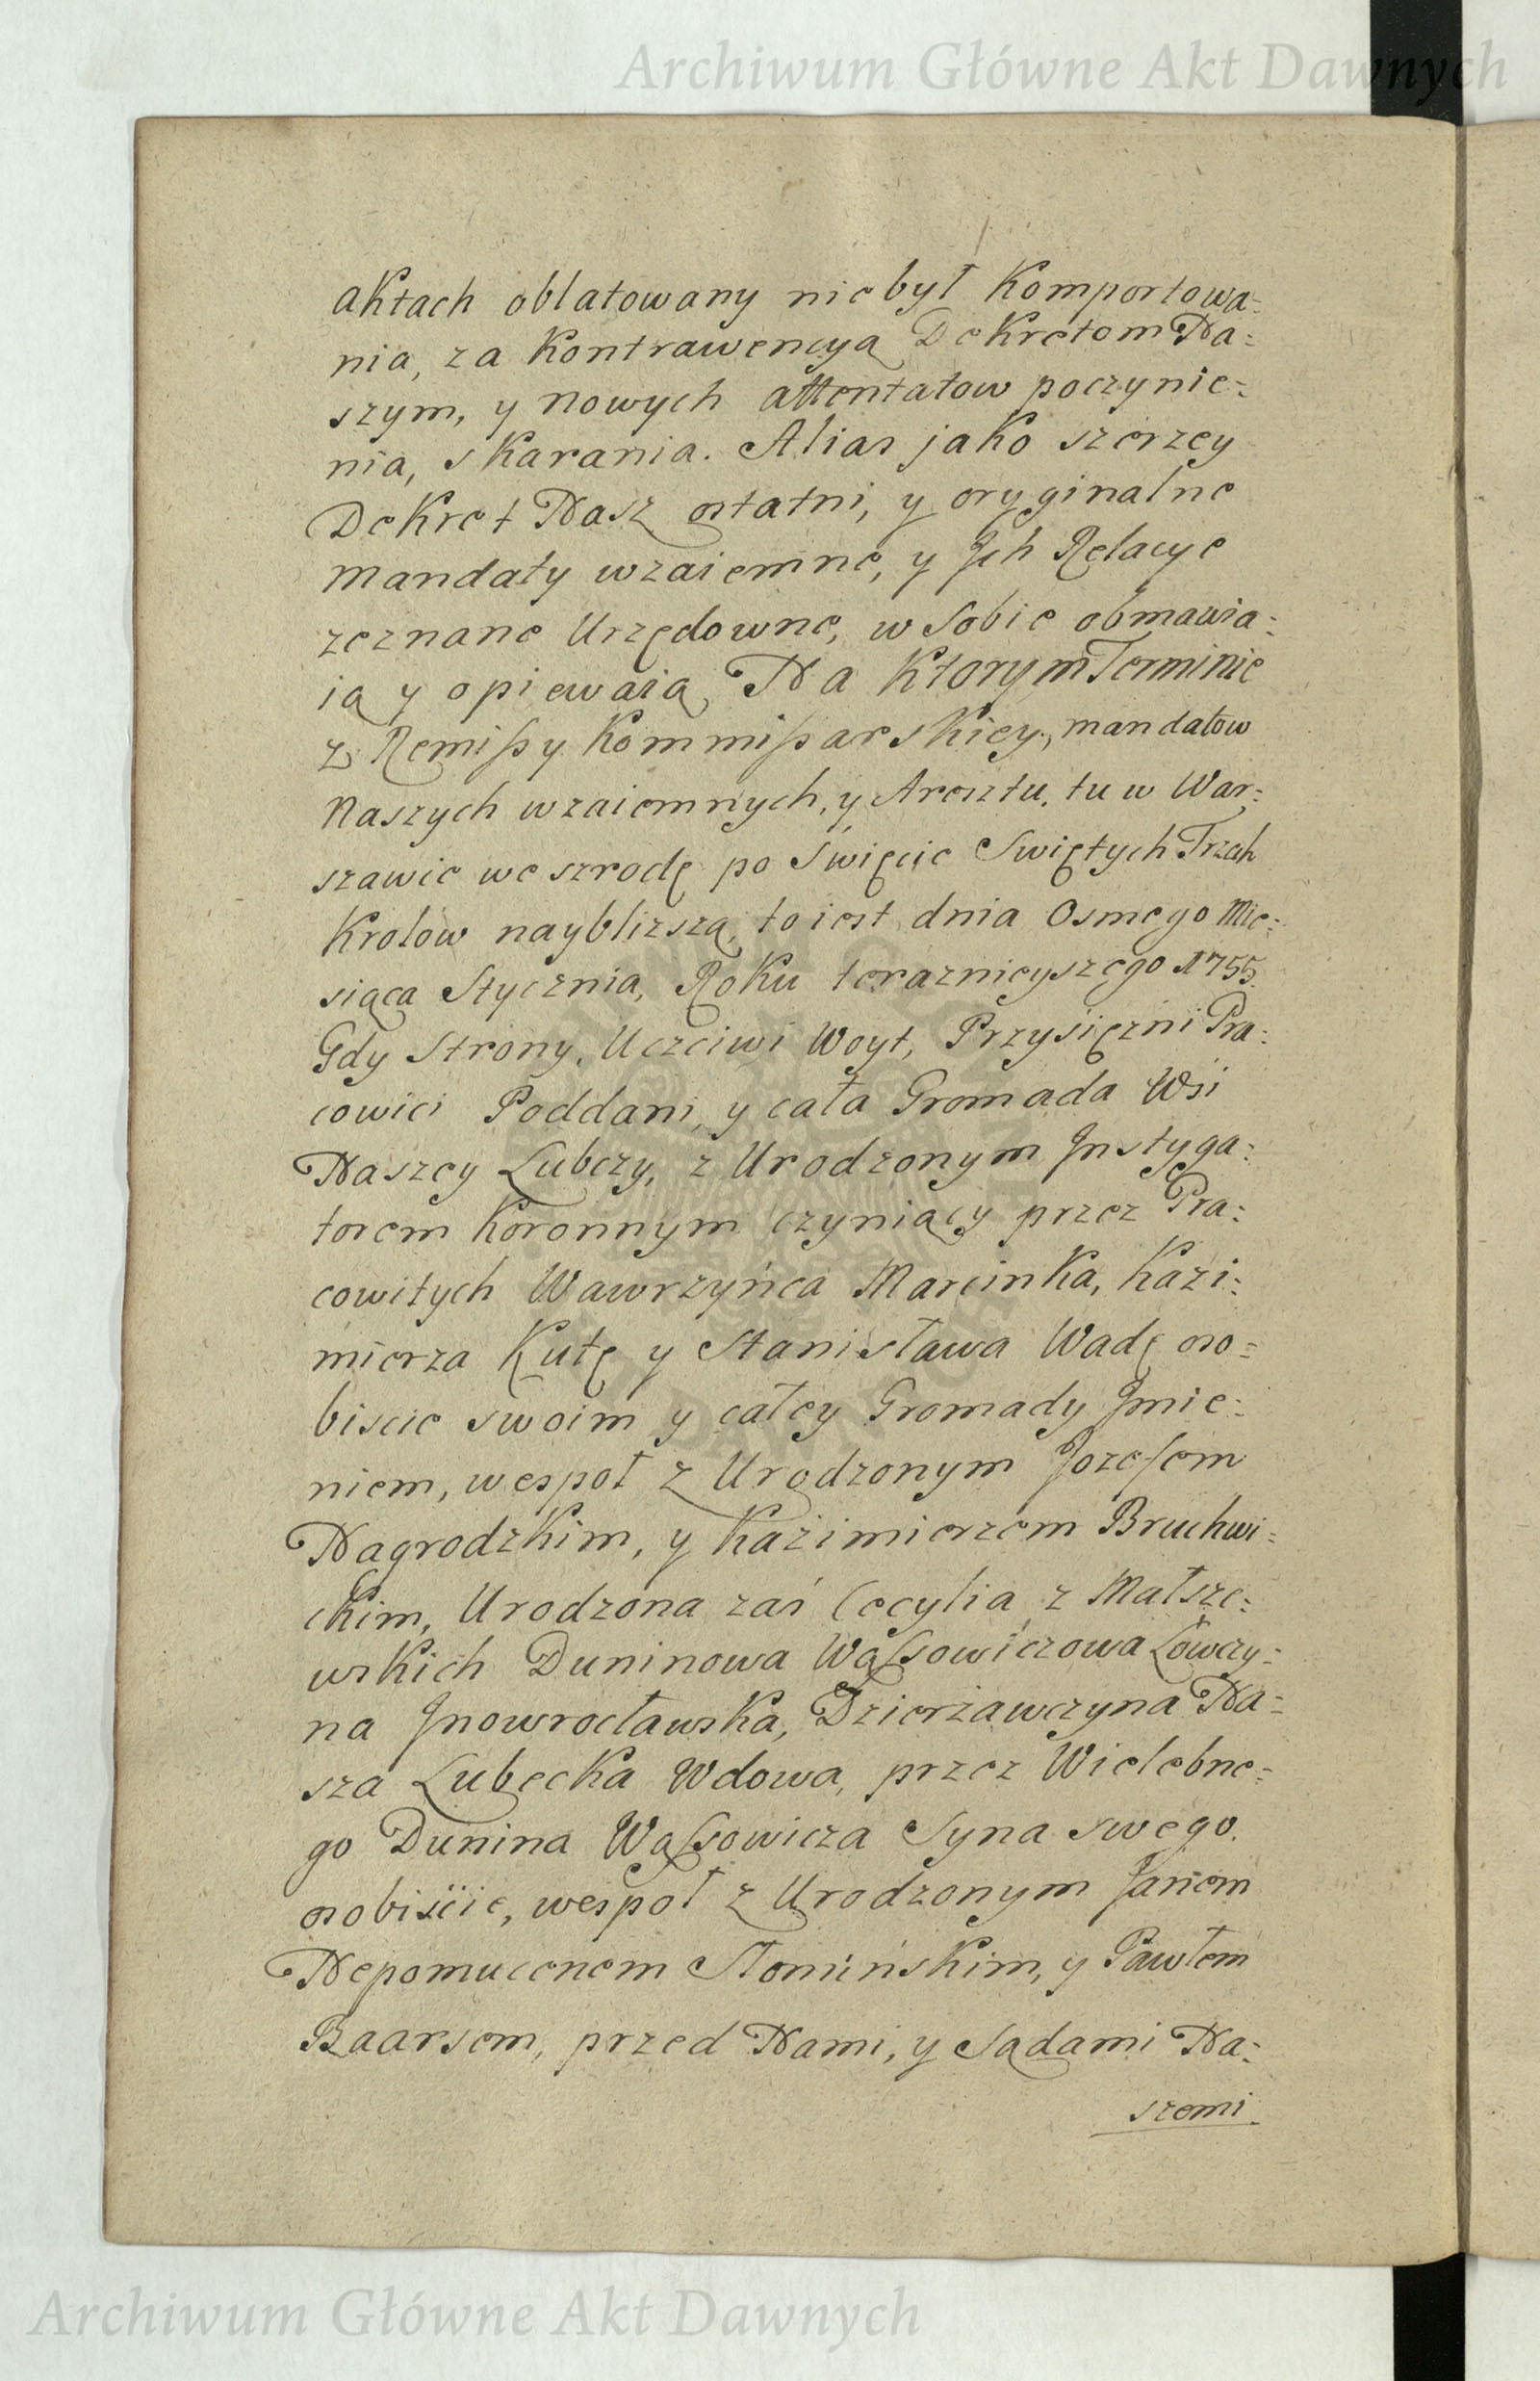 Archiwum Główne Akt Dawnych
aktach oblatowany niebył Komportowa=
nia, za Kontrawencyą Dekretom Na=
szym, y nowych attentatow poczynie=
nia, skarania. Alias jako szerzey
Dekret Nasz ostatni, y oryginalne
mandaty wzaiemne, y Jch Relacye
zeznane Urzędowne, w sobie obmawia=
ią y opiewaią. Na Ktorym Terminie
z Remißy Kommißarskiey, mandatow
Naszych wzaiemnych, y Aresztu, tu w War=
szawie we szrodę po Swięcie Swiętych Trzech
Krolow nayblizszą, to iest dnia Osmego Mie=
siąca Stycznia, Roku teraznieyszego 1755.
Gdy Strony, Uczciwi Woyt, Przysięzni Pra=
cowici Poddani, y cała Gromada Wsi
Naszey Lubczy, z Urodzonym Jnstyga=
torem Koronnym czyniący przez Pra=
cowitych Wawrzyńca Marcinka, Kazi=
mierza Kutę y Stanisława Wadę oso=
biscie swoim y całey Gromady Jmie=
niem, wespoł z Urodzonym Jozefem
Nagrodzkim, y Kazimierzem Bruchwi=
ckim, Urodzona zaś Cecylia z Małsze=
wskich Duninowa Wąsowiczowa Łowczy=
na Jnowrocławska, Dzierżawczyna Na=
sza Lubecka Wdowa, przez Wielebne=
go Dunina Wąsowicza Syna swego.
osobiście, wespoł z Urodzonym Janem
Nepomucenem Słonińskim, y Pawłem
Baarsem, przed Nami, y Sądami Na=
szemi
Archiwum Główne Akt Dawnych